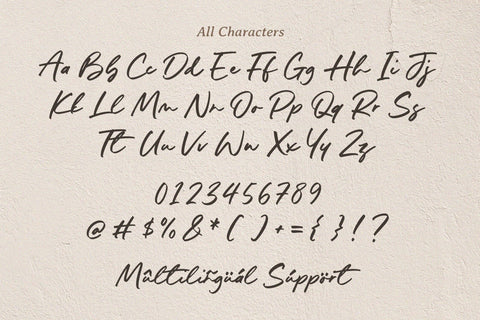 All Characters
Aa Bb Cc Dd Ee Ff Gg Hh Ii Jj
Kk Ll Mm Nn Oo Pp Qq Rr Ss
Tt Uu Vv Ww Xx Yy Zz
0123456789
@ # $ % & * ( ) + = { } ! ?
Mûltilirĩgüál Súppört